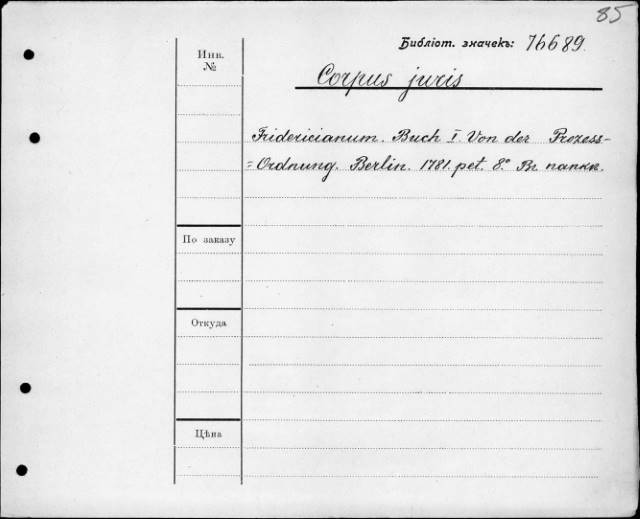 85
Библіот. значекъ: 76689.
Инв. №
Corpus juris
Fridericianum. Buch I. Von der Prozess-
=Ordnung. Berlin. 1781. pet. 8.° Въ папкѣ.
По заказу
Откуда
Цѣна